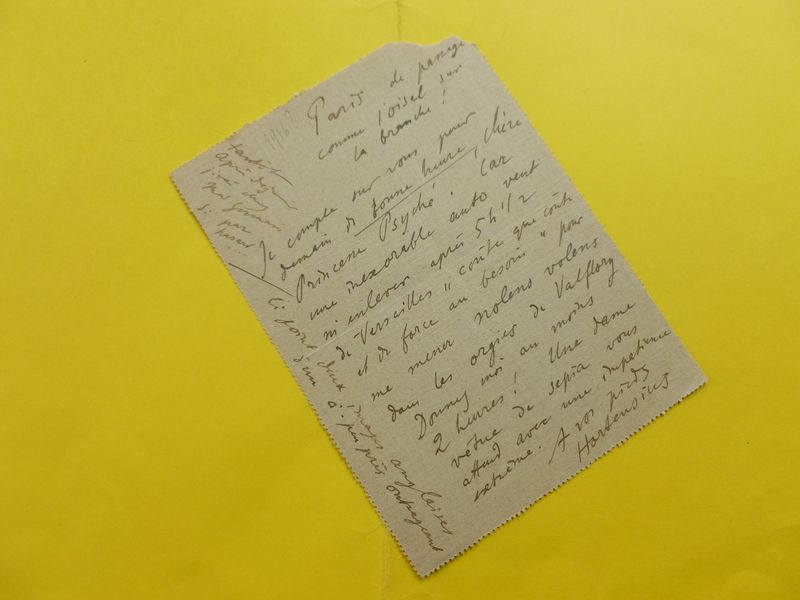 1916?
Paris de passage
comme l'oisel sur
la branche !
Je compte sur vous pour
demain de bonne heure, chère
Princesse Psyché. Car
une inexorable auto vient
m'enlever après 5h 1/2
de Versailles "coûte que coûte
et de force au besoin" pour
me mener nolens volens
dans les orgies de Valflory
Donnez moi au moins
2 heures ! Une dame
vêtue de sepia vous
attend avec une impatience
extrême. A vos pieds
Hortensius
tantôt
après
chez
si par
hasard !!!
Ci joint deux images anglaises
d'un à peu près outrageant